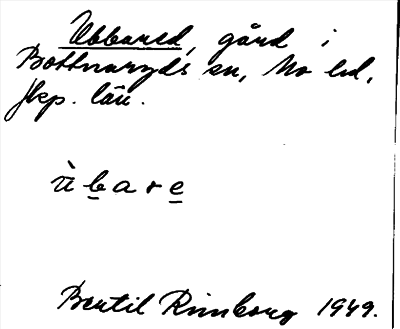 Ubbared, gård i
Bottnaryds sn, Mo hd,
Jkp. län.
ù b a r e
Bertil Rimborg 1949.